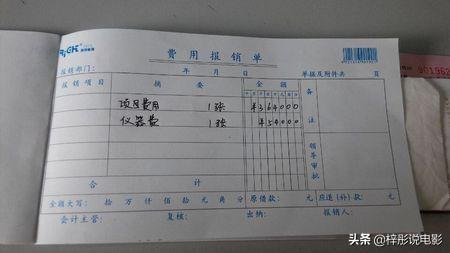 费用报销单
报销部门： 年 月 日 单据及附件共 页
报销项目 摘要 金额 备注
项目费用 1张 ¥364000
仪器费 1张 ¥54000
领导审批
合计
金额大写： 拾 万 仟 佰 拾 元 角 分 原借款： 元 应退（补）款： 元
会计主管： 复核： 出纳： 报销人：
头条 @梓彤说电影